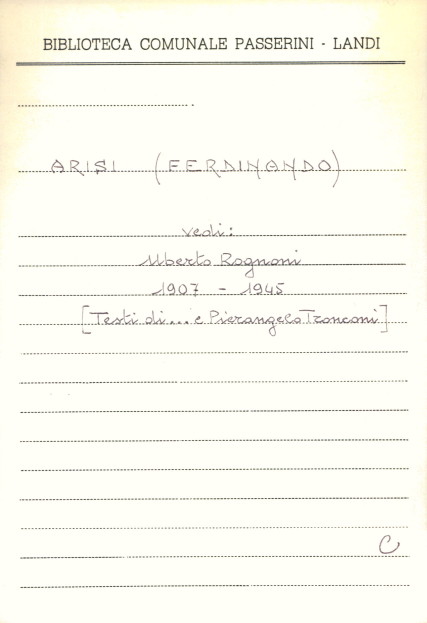 BIBLIOTECA COMUNALE PASSERINI - LANDI
ARISI (FERDINANDO)
vedi:
Uberto Rognoni
1907 - 1945
[Testi di... e Pierangelo Tronconi]
C